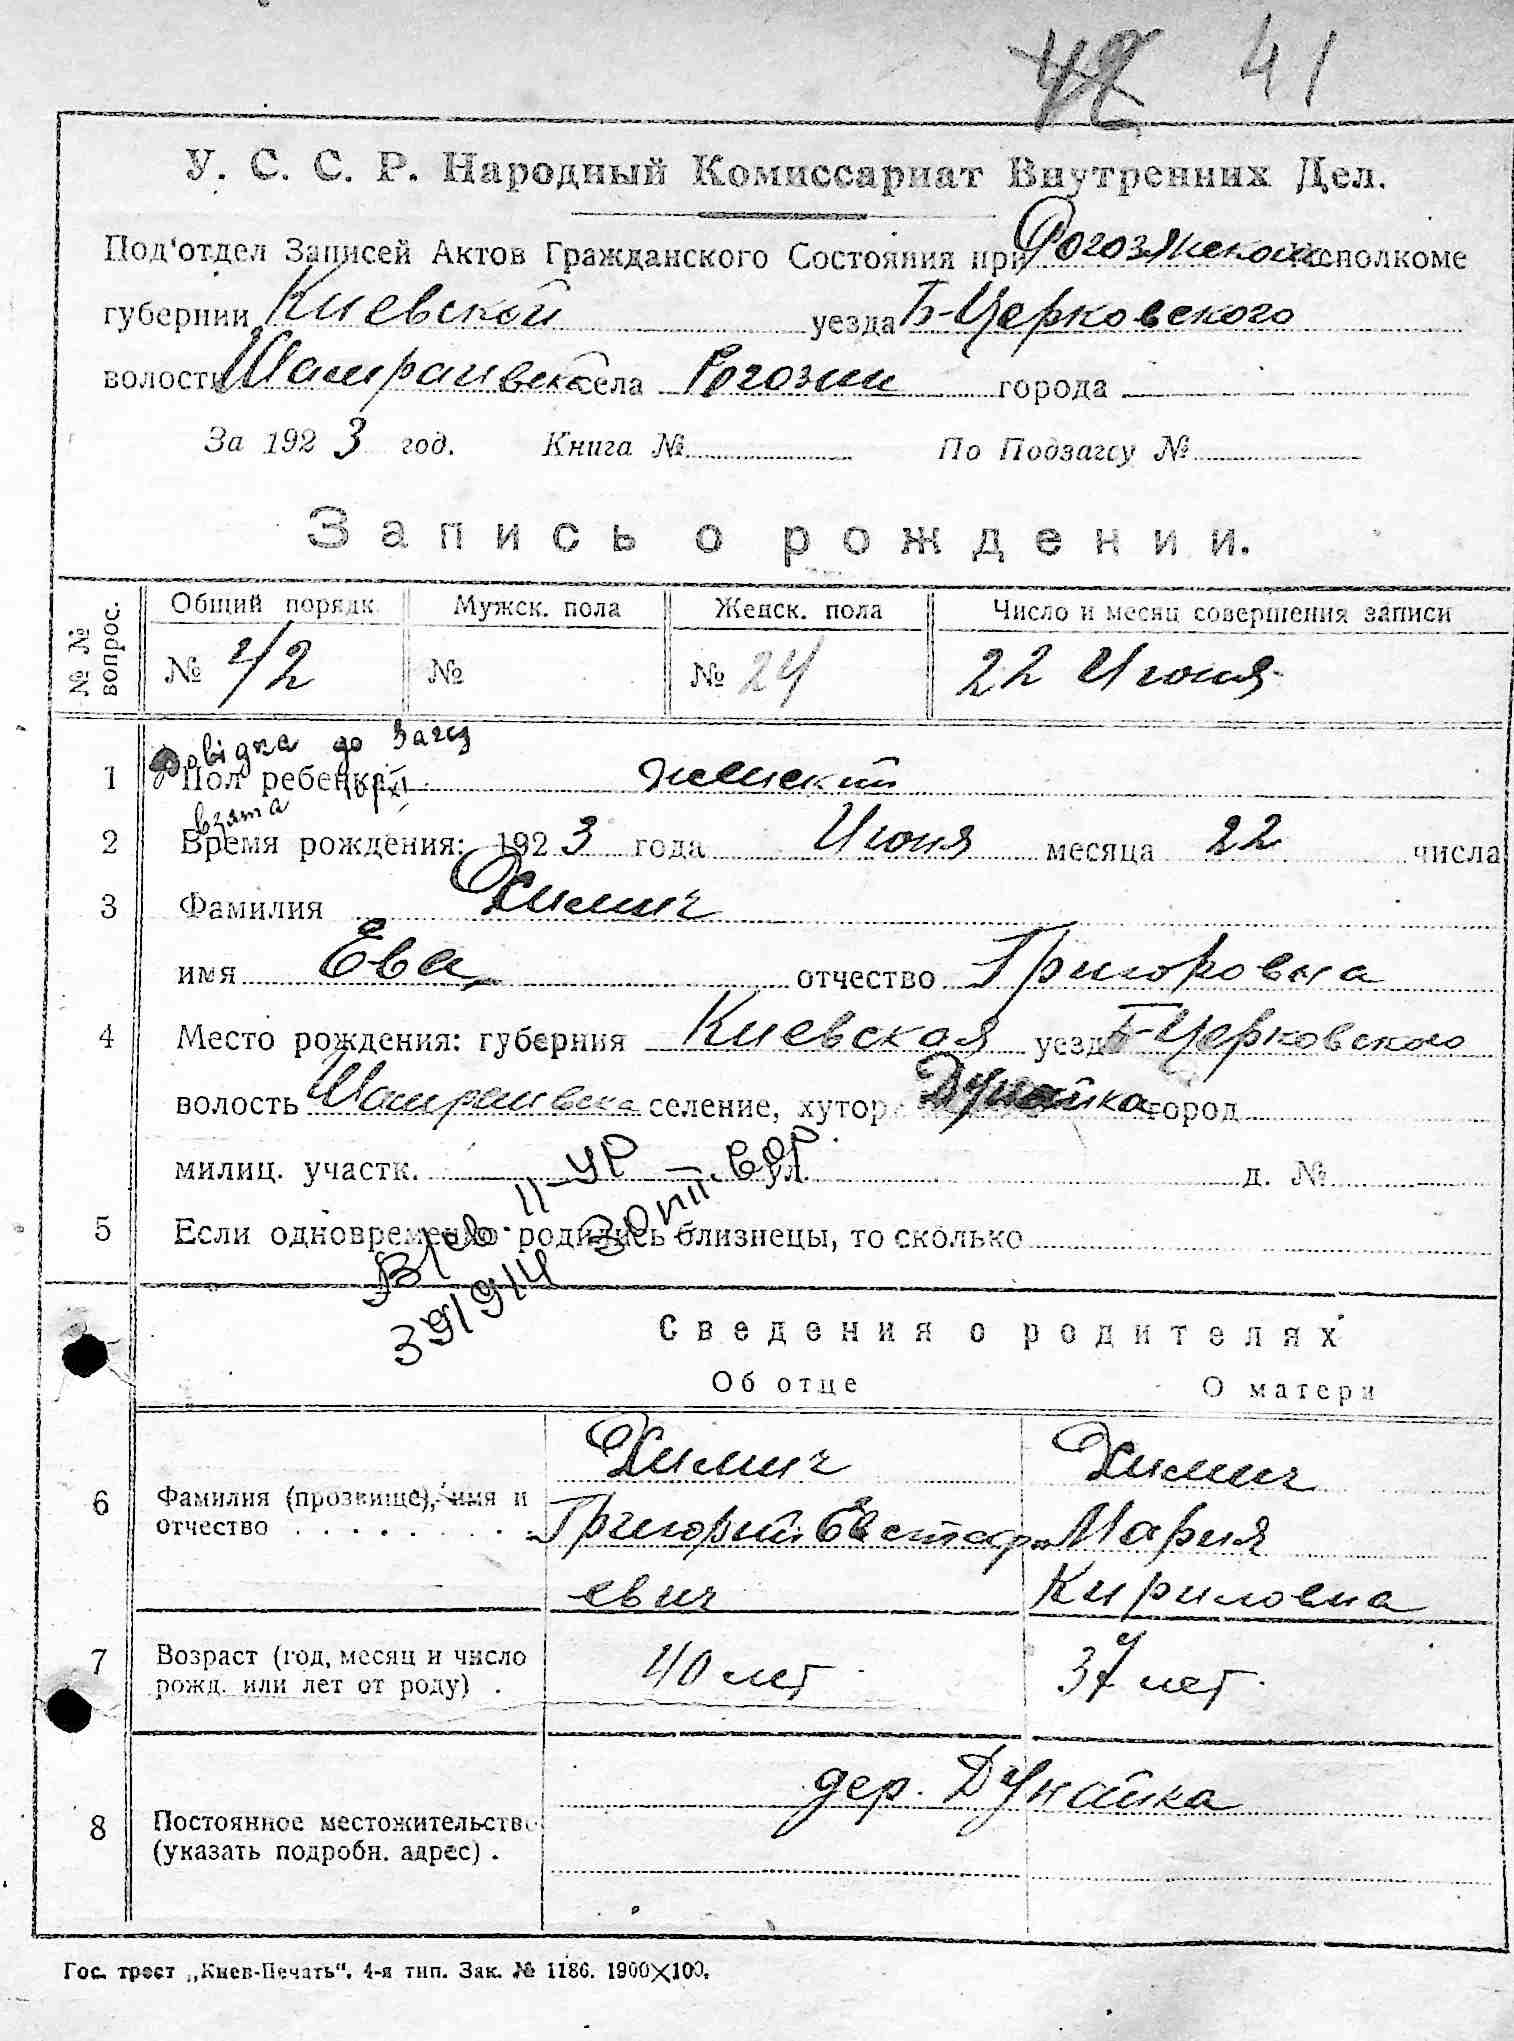 42 41
У. С. С. Р. Народный Комиссариат Внутренних Дел.
Под'отдел Записей Актов Гражданского Состояния при Рогозянском исполкоме
губернии Киевской уезда Б-Церковского
волости Шамраивка села Рогозни города
За 1923 год. Книга № По Подзагсу №
Запись о рождении.
№ № вопрос. Общий порядк. Мужск. пола Женск. пола Число и месяц совершения записи
№ 42 № № 24 22 Июня
Довідка до Загсу
1 Пол ребенка женский
взята
2 Время рождения: 1923 года Июня месяца 22 числа
3 Фамилия Химич
имя Ева отчество Григоровна
4 Место рождения: губерния Киевская уезд Б-Церковского
волость Шамраивка селение, хутор Дунайка город
милиц. участк. ул. д. №
5 Если одновременно родились близнецы, то сколько
Сведения о родителях
Об отце О матери
Химич Химич
6 Фамилия (прозвище), имя и
отчество Григорий Евстафи Мария
евич Кириловна
7 Возраст (год, месяц и число
рожд. или лет от роду) . 40 лет 37 лет.
дер. Дунайка
8 Постоянное местожительство
(указать подробн. адрес) .
Гос. трест „Киев-Печать“. 4-я тип. Зак. № 1186. 1900×100.